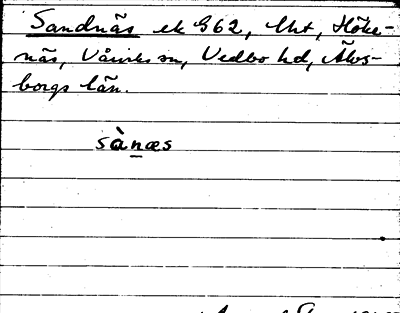 Sandnäs ek G62, Uht, Höke-
näs, Vårviks sn, Vedbo hd, Älvs-
borgs län.
sànæs